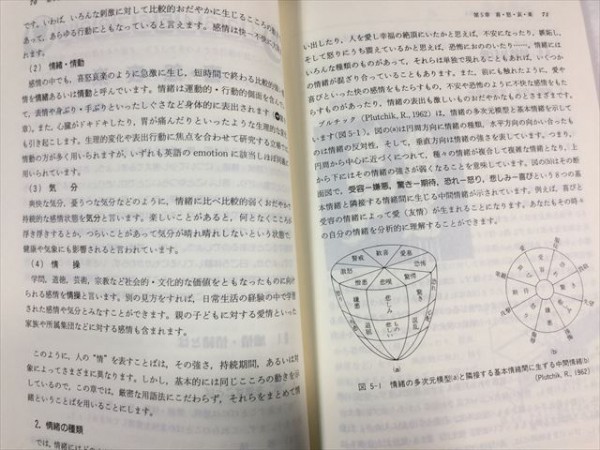 です。いわば、いろんな刺激に対して比較的おだやかに生じるこころの動き
あって、あらゆる行動にともなっていると言えます。感情は快－不快に大
(2) 情緒・情動
感情の中でも、喜怒哀楽のように急激に生じ、短時間で終わる比較的強
情を情緒あるいは情動と呼んでいます。情緒は運動的・行動的側面を含んで
て、表情や身ぶり・手ぶりといったしぐさなど身体的に表出されます
章)。また、心臓がドキドキしたり、胃が痛んだりといったような生理的な変
も引き起こします。生理的変化や表出行動に焦点を合わせて研究する立場で
情動の方が多く用いられますが、いずれも英語の emotion に該当し
用いられています。
(3) 気 分
爽快な気分、憂うつな気分などのように、情緒に比べ比較的弱くおだやかで
持続的な感情状態を気分と言います。楽しいことがあると、何となくこころが
浮き浮きするとか、つらいことがあって気分が晴れ晴れしないという状態で、
健康や気象にも影響されると言われています。
(4) 情 操
学問、道徳、芸術、宗教など社会的・文化的な価値をともなったものに向け
られる感情を情操と言います。別の見方をすれば、日常生活の経験の中で学習
された感情や気分とみなすことができます。親の子どもに対する愛情といった
家族や所属集団などに対する感情も含まれます。
このように、人の“情”を表すことばは、その強さ、持続期間、あるいは対
象によってさまざまに異なります。しかし、基本的には同じこころの動きを示
しているので、この章では、厳密な用語法にこだわらず、それらをまとめて情
緒ということばを用いることにします。
2. 情緒の種類
では、情緒には
第5章 喜・怒・哀・楽 73
い出したり、人を愛し幸福の絶頂にいたかと思えば、不安になったり、嫉妬し、
そして怒りにうち震えているかと思えば、恐怖におののいたり――。情緒には
いろんな種類のものがあって、それらは単独で現れることもあれば、いくつか
の情緒が混ざり合っていることもあります。また、前にも触れたように、愛や
喜びといった快の感情をもたらすもの、不安や恐怖のように不快な感情をもた
らすものがあったり、情緒の表出も激しいものおだやかなものとさまざまです。
プルチック (Plutchik, R., 1962) は、情緒の多次元模型と基本情緒を示して
います(図5-1)。図の(a)は円周方向に情緒の種類、水平方向の向かい合ったも
のは情緒の反対性、そして、垂直方向は情緒の強さを表しています。つまり、
円周から中心に近づくにつれて、種々の情緒が複合して複雑な情緒となり、上
から下にはその情緒の強さが弱くなることを意味しています。図の(b)はその断
面図で、受容－嫌悪、驚き－期待、恐れ－怒り、悲しみ－喜びという8つの基
本情緒と隣接する情緒間に生じる中間情緒が示されています。例えば、喜びと
受容の情緒によって愛(友情)が生まれることになります。あなたもその時々
の自分の情緒を分析的に理解することができます。
図 5-1 情緒の多次元模型(a)と隣接する基本情緒間に生ずる中間情緒(b)
(Plutchik, R., 1962)